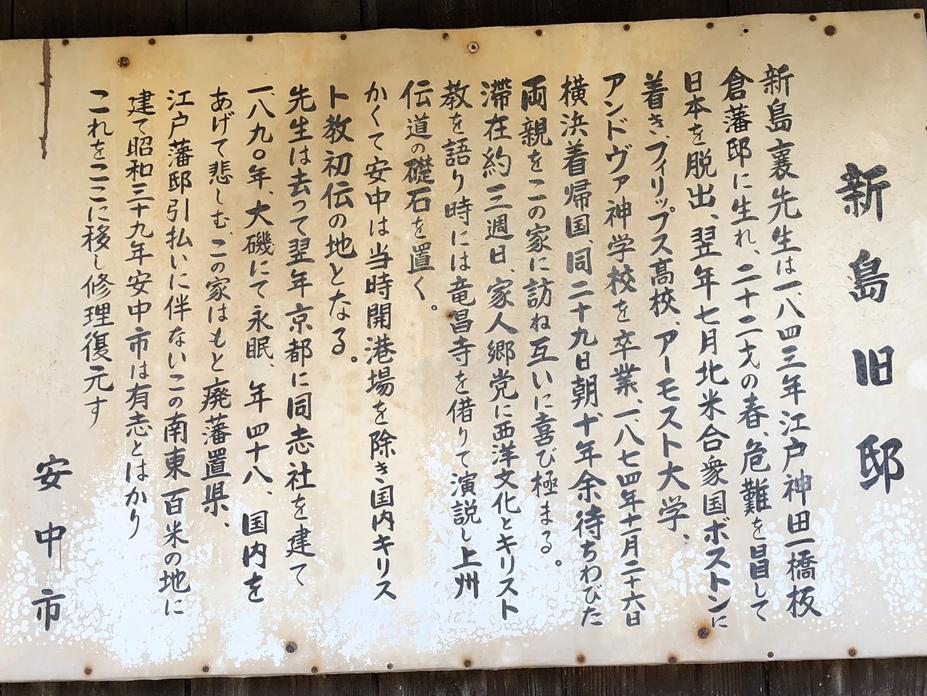 新島旧邸
新島襄先生は一八四三年江戸神田一橋板
倉藩邸に生れ、二十二才の春、危難を冒して
日本を脱出、翌年七月北米合衆国ボストンに
着きフィリップス高校、アーモスト大学、
アンドヴァ神学校を卒業、一八七四年十一月二十六日
横浜着帰国、同二十九日朝十年余待ちわびた
両親をこの家に訪ね互いに喜び極まる。
滞在約三週日、家人郷党に西洋文化とキリスト
教を語り時には竜昌寺を借りて演説し上州
伝道の礎石を置く。
かくて安中は当時開港場を除き国内キリス
ト教初伝の地となる。
先生は去って翌年京都に同志社を建て
一八九〇年、大磯にて永眠、年四十八、国内を
あげて悲しむ、この家はもと廃藩置県、
江戸藩邸引払いに伴ないこの南東百米の地に
建て昭和三十九年安中市は有志とはかり
これをここに移し修理復元す
安中市